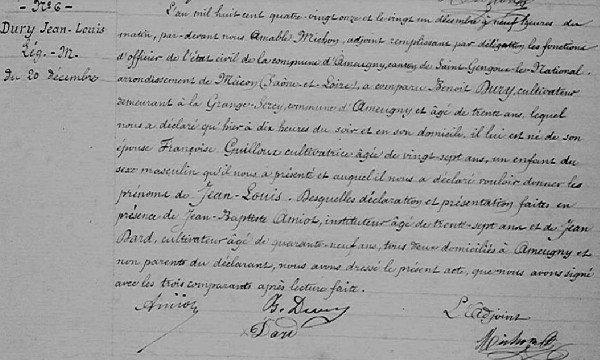 - N° 6 -
Dury Jean-Louis
Lég. - M.
Du 20 Décembre
L'an mil huit cent quatre-vingt onze et le vingt un décembre à neuf heures du
matin, par-devant nous Amable Michon, adjoint remplissant par délégation les fonctions
d'officier de l'état civil de la commune d'Ameugny, canton de Saint-Gengoux-le-National
arrondissement de Mâcon (Saône-et-Loire), a comparu Benoît Dury, cultivateur
demeurant à la Grange-Sercy, commune d'Ameugny et âgé de trente ans, lequel
nous a déclaré qu'hier à dix heures du soir et en son domicile, il lui est né de son
épouse Françoise Guilloux cultivatrice âgée de vingt-sept ans, un enfant du
sexe masculin qu'il nous a présenté et auquel il nous a déclaré vouloir donner les
prénoms de Jean-Louis. Desquelles déclaration et présentation faites en
présence de Jean-Baptiste Amiot, instituteur âgé de trente-sept ans et de Jean
Dard, cultivateur âgé de quarante-neuf ans, tous deux domiciliés à Ameugny et
non parents du déclarant, nous avons dressé le présent acte, que nous avons signé
avec les trois comparants après lecture faite.
Amiot B. Dury L'Adjoint
Dard Michon